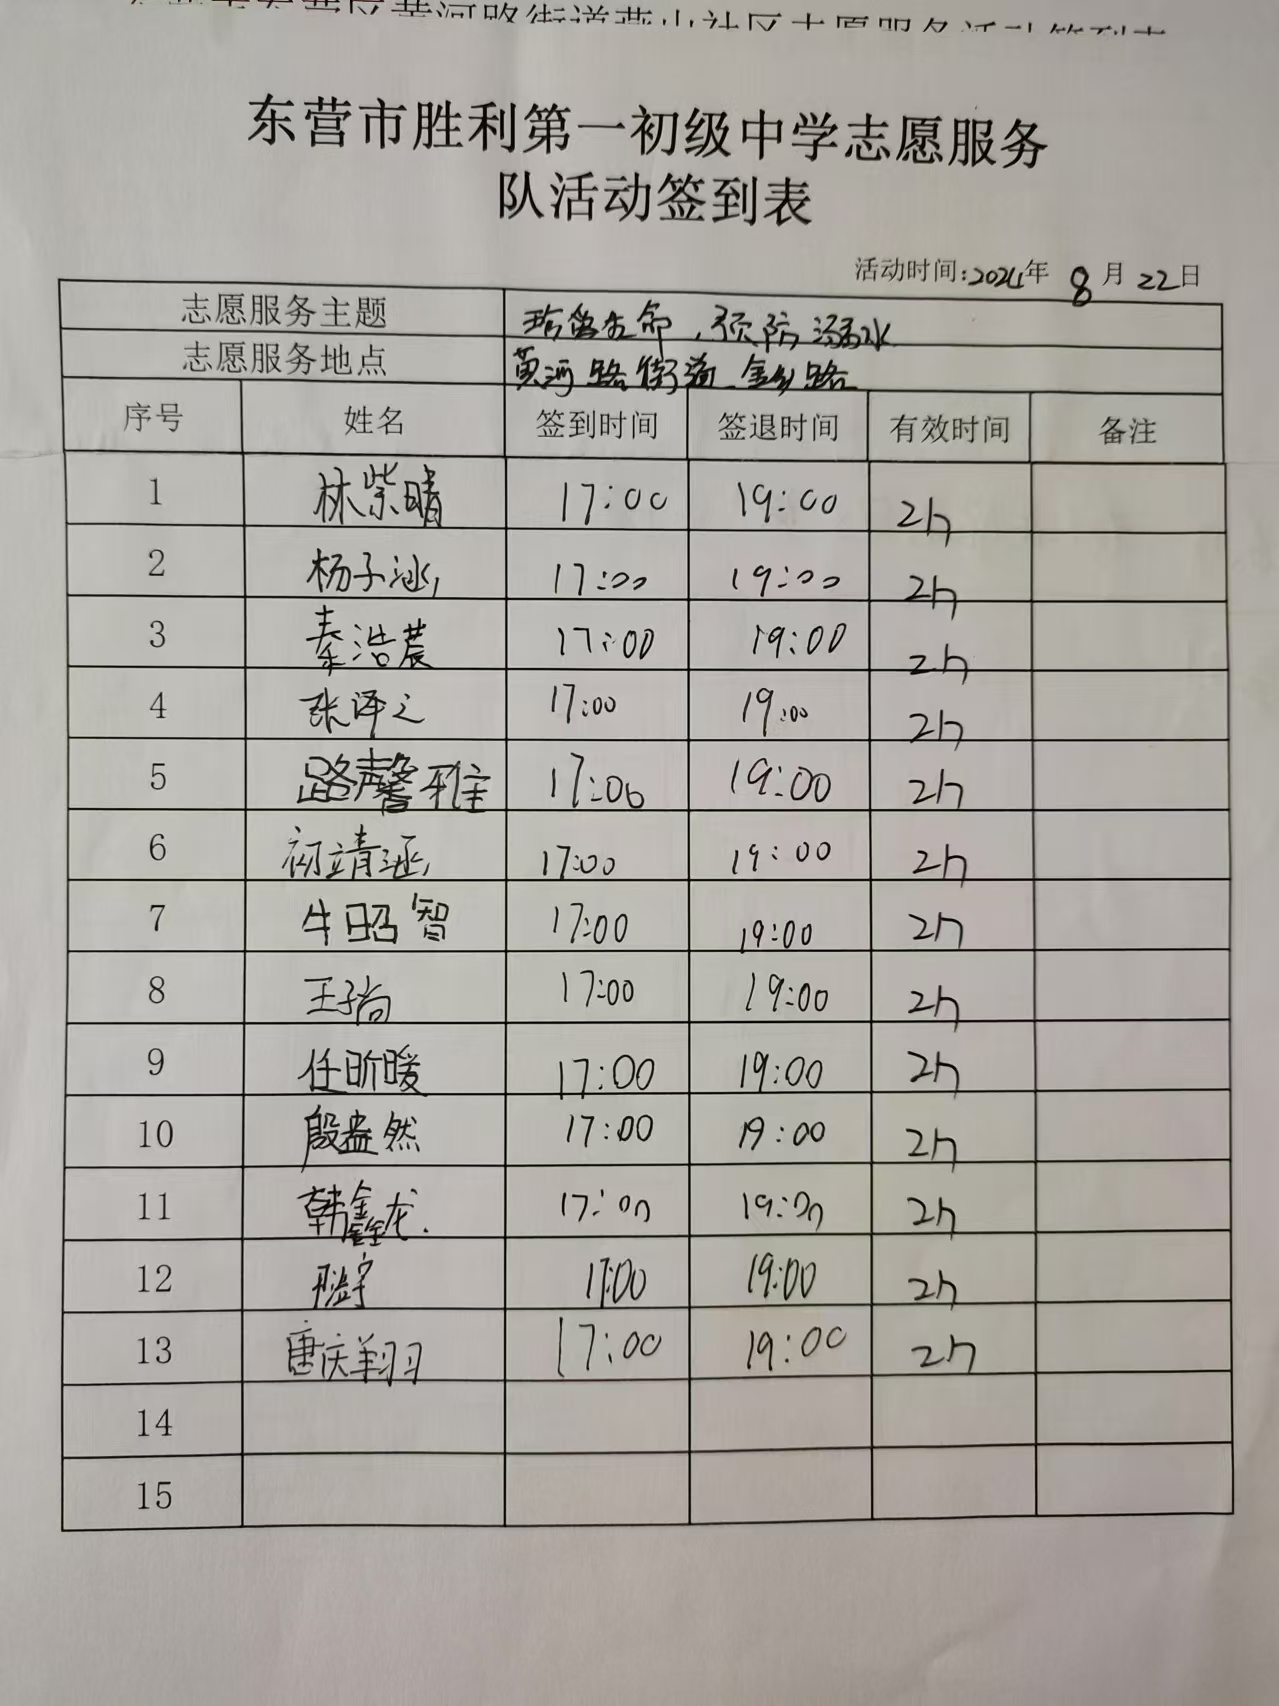 东营市胜利第一初级中学志愿服务
队活动签到表
活动时间:2024年 8 月 22日
志愿服务主题 珍爱生命,预防溺水
志愿服务地点 黄河路街道金乡路
序号 姓名 签到时间 签退时间 有效时间 备注
1 林紫晴 17:00 19:00 2h
2 杨子涵 17:00 19:00 2h
3 秦浩晨 17:00 19:00 2h
4 张泽之 17:00 19:00 2h
5 路馨雅 17:00 19:00 2h
6 初靖涵 17:00 19:00 2h
7 牛昭智 17:00 19:00 2h
8 王子尚 17:00 19:00 2h
9 任昕暖 17:00 19:00 2h
10 殷盎然 17:00 19:00 2h
11 韩鑫龙. 17:00 19:00 2h
12 17:00 19:00 2h
13 唐庆翔 17:00 19:00 2h
14
15